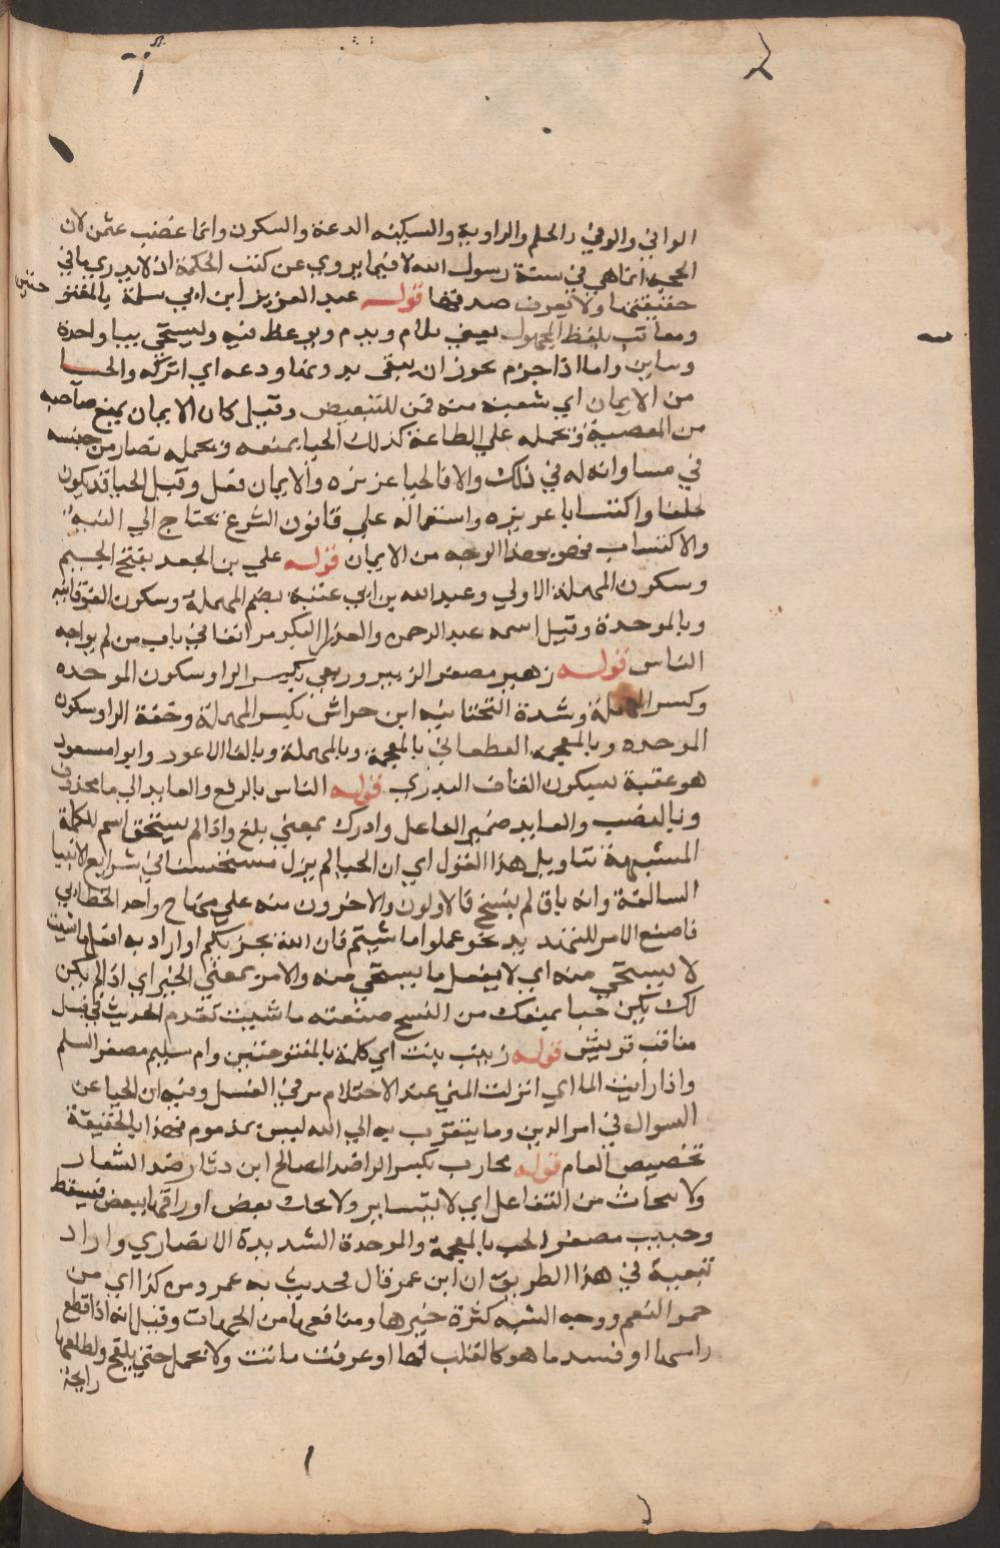 الواني والوفي دالحلم والراوية والسكينه الدعة والسكون وانما غضب عثمن لان
الحجه انما هي في سنة رسول الله لا فيما يروي عن كتب الحكمة اذ لا يدري ما في
حقيقتها ولا يعرف صدقها قوله عبد العزيز ابن ابي سلمة بالمفتو حتين
ومعاتب بلفظ المجهول يعني يلام ويذم ويوعظ فيه وليستحي بيا واحدة
وساين واما اذا جزم يجوز ان يبقى ودعه اي اتركه والحيا
من الايمان اي شعبة منه فمن للتبعيض وقيل كان الايمان يمنع صاحبه
من المعصية ويحمله علي الطاعة كذلك الحيا يمنعه ويحمله فصار من جنسه
في مساواته له في ذلك والا فالحيا غريزه والايمان فعل وقيل الحيا قد يكون
تخلقا واكتسابا غريزه واستعماله علي قانون الشرع يحتاج الي النية
والاكتساب فهو بهذا الوجه من الايمان قوله علي بن الجعد بفتح الجيم
وسكون المهملة الاولي وعبد الله بن ابي عتبة بضم المهملة وسكون الفوقانيه
وبالموحدة وقيل اسمه عبد الرحمن والعذرا البكر مر انفا في باب من لم يواجه
الناس قوله زهير مصغر الزبير وربعي بكسر الرا وسكون الموحده
وكسر المهملة وشدة التحتانيه ابن حراش بكسر المهملة وخفة الرا وسكون
الموحده وبالمعجمه الغطفاني بالمعجمة وبالمهملة وبالفا الاعور وابو مسعود
هو عتبة بسكون القاف البدري قوله الناس بالرفع والعايد الي ما محذوف
وبالنصب والعايد ضمير الفاعل وادرك بمعني بلغ واذا لم يستحق اسم للكلمة
المشبهة بتاويل هذا القول اي ان الحيا لم يزل مستحسنا في شرايع الانبيا
السالفة وانه باق لم ينسخ فالاولون والاخرون منه علي منهاج واحد الخطابي
فاصنع الامر للتهديد نحو عملوا ما شيتم فان الله يجزيكم او اراد به افعل ما شيت
لا يستحي منه اي لا يفعل ما يستحي منه والامر بمعني الخبر اي اذا لم يكن
لك يكن حيا يمنعك من القبح صنعته ما شيت تقدم الحديث في قبل
مناقب قريش قوله زينب بنت اي كلمة بالمفتوحتين وام سليم مصغر السلم
واذا رايت الما اي انزلت المني عند الاحتلام مر في الغسل وفيه ان الحيا عن
السوال في امر الدين وما يتقرب به الي الله ليس بمذموم فهذا بالحقيقة
تخصيص العام قوله محارب بكسر الرا ضد المصالح ابن دثار ضد الشعار
ولا يتحات من التفاعل اي لا يتساير ولا يحات بعض اوراقها ببعض فيسقط
وحبيب مصغر الحب بالمعجمة والموحدة الشديدة الانصاري واراد
تتمية في هذا الطريق ان ابن عمر قال فحديث به عمر ومن كذا اي من
حمر النعم ووجه الشبه كثرة خيرها ومنافعها من الجهات وقيل انه اذا قطع
راسها او فسد ما هو كالقلب لها او غرقت ماتت ولا تحمل حتي يلقح ولطلعها
رايحة